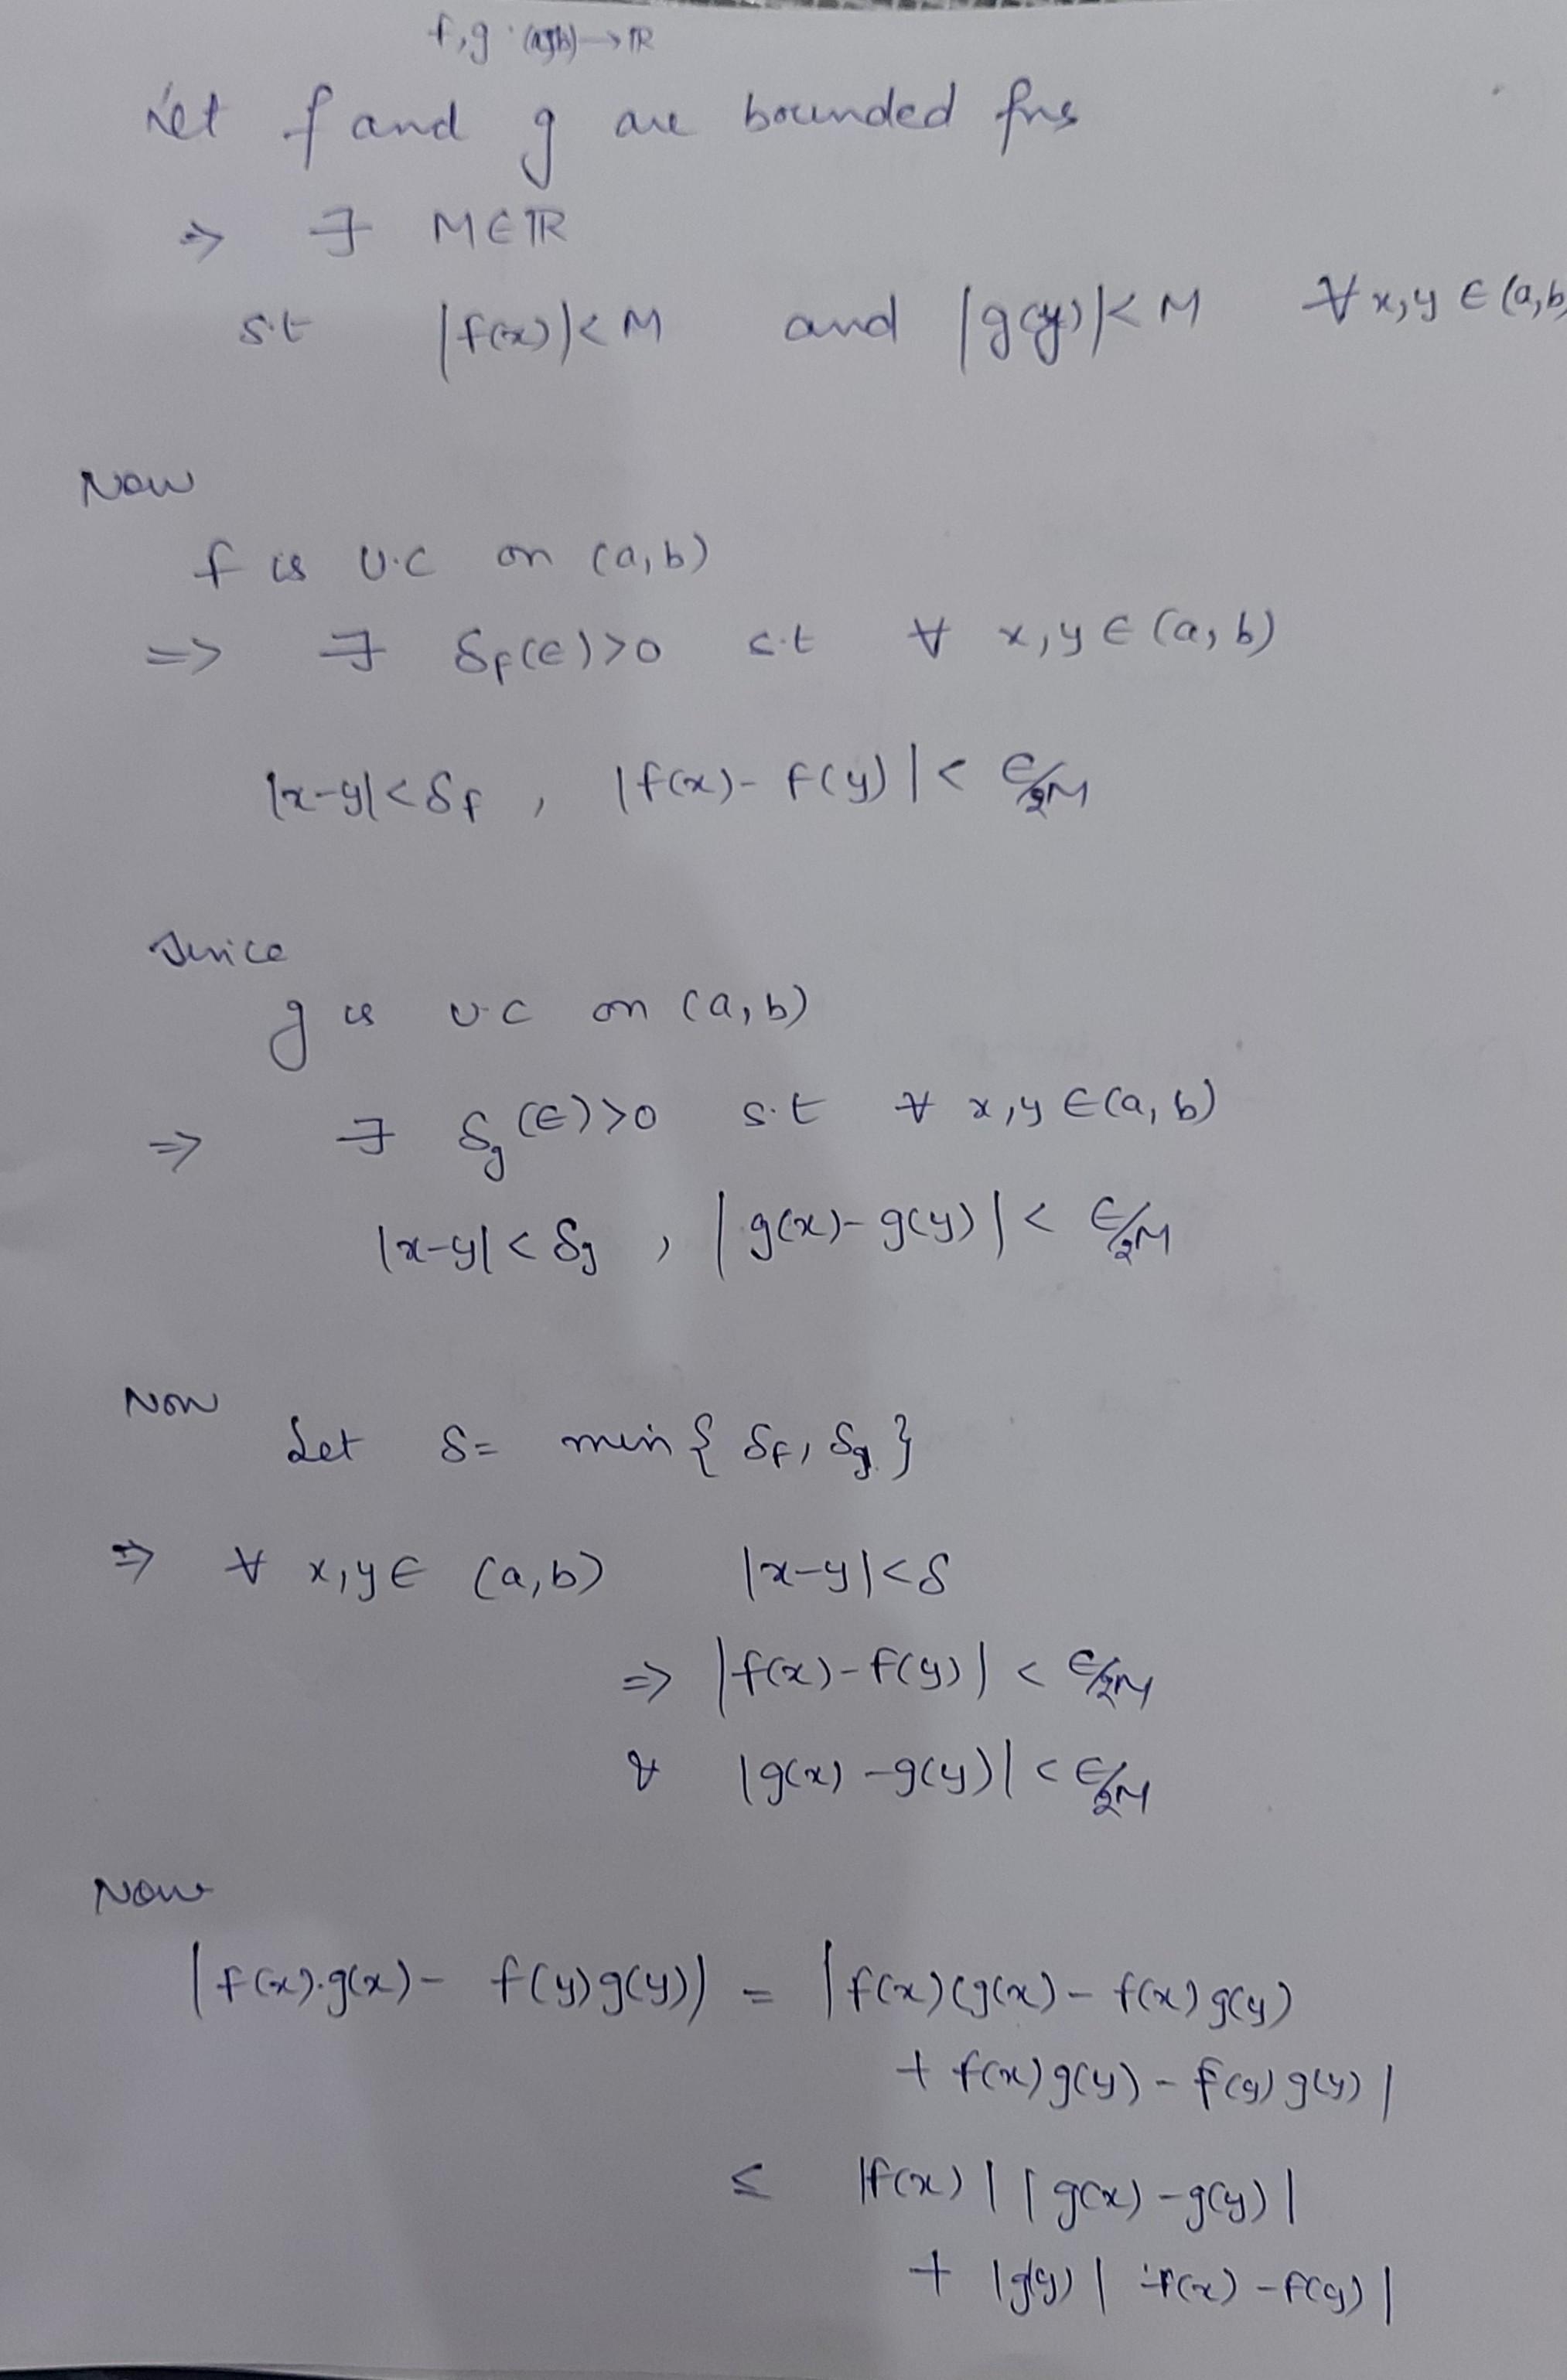 f,g : (a,b) → ℝ
Let f and g are bounded fns
⇒ ∃ M ∈ ℝ
s.t |f(x)| < M and |g(y)| < M ∀ x,y ∈ (a,b
Now
f is U.C on (a,b)
⇒ ∃ δ_f(ϵ) > 0 s.t ∀ x,y ∈ (a,b)
|x-y| < δ_f , |f(x) - f(y)| < ϵ/2M
Since
g is U.C on (a,b)
⇒ ∃ δ_g(ϵ) > 0 s.t ∀ x,y ∈ (a,b)
|x-y| < δ_g , |g(x) - g(y)| < ϵ/2M
Now
Let δ = min { δ_f, δ_g }
⇒ ∀ x,y ∈ (a,b) |x-y| < δ
⇒ |f(x) - f(y)| < ϵ/2M
& |g(x) - g(y)| < ϵ/2M
Now
|f(x).g(x) - f(y)g(y)| = |f(x)(g(x) - f(x)g(y)
+ f(x)g(y) - f(y)g(y)|
≤ |f(x)| |g(x) - g(y)|
+ |g(y)| |f(x) - f(y)|